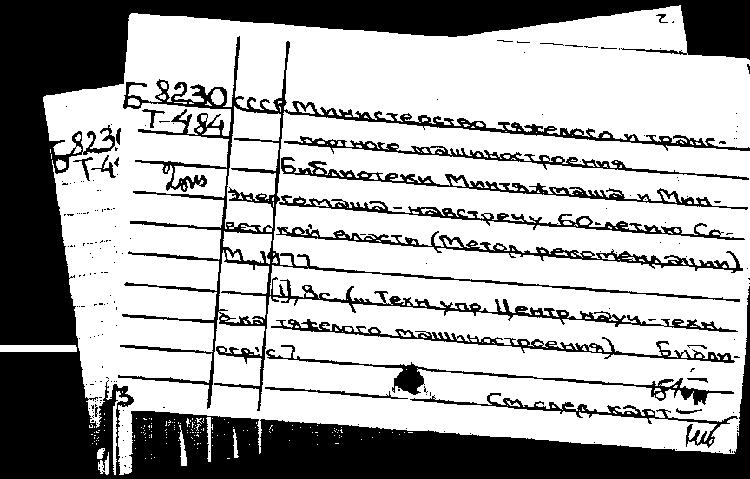 2.
Б 8230 СССР Министерство тяжелого и транс-
Т-484 портного машиностроения
Библиотеки Минтяжмаша и Мин-
энергомаша - навстречу 60-летию Со-
ветской власти (Метод. рекомендации)
М., 1977
[1], 8с. (... Техн. упр. Центр. науч.-техн.
б-ка тяжелого машиностроения). Библи-
огр: с. 7.
См. след. карт.
Б 823
Т-4